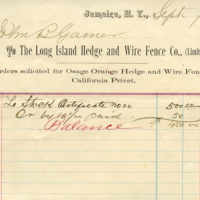 Jamaica, N. Y., Sept
To The Long Island Hedge and Wire Fence Co., (Limit
rders solicited for Osage Orange Hedge and Wire Fen
California Privet.
To Stock Certificate
Cr by 10% paid 50
Balance 450